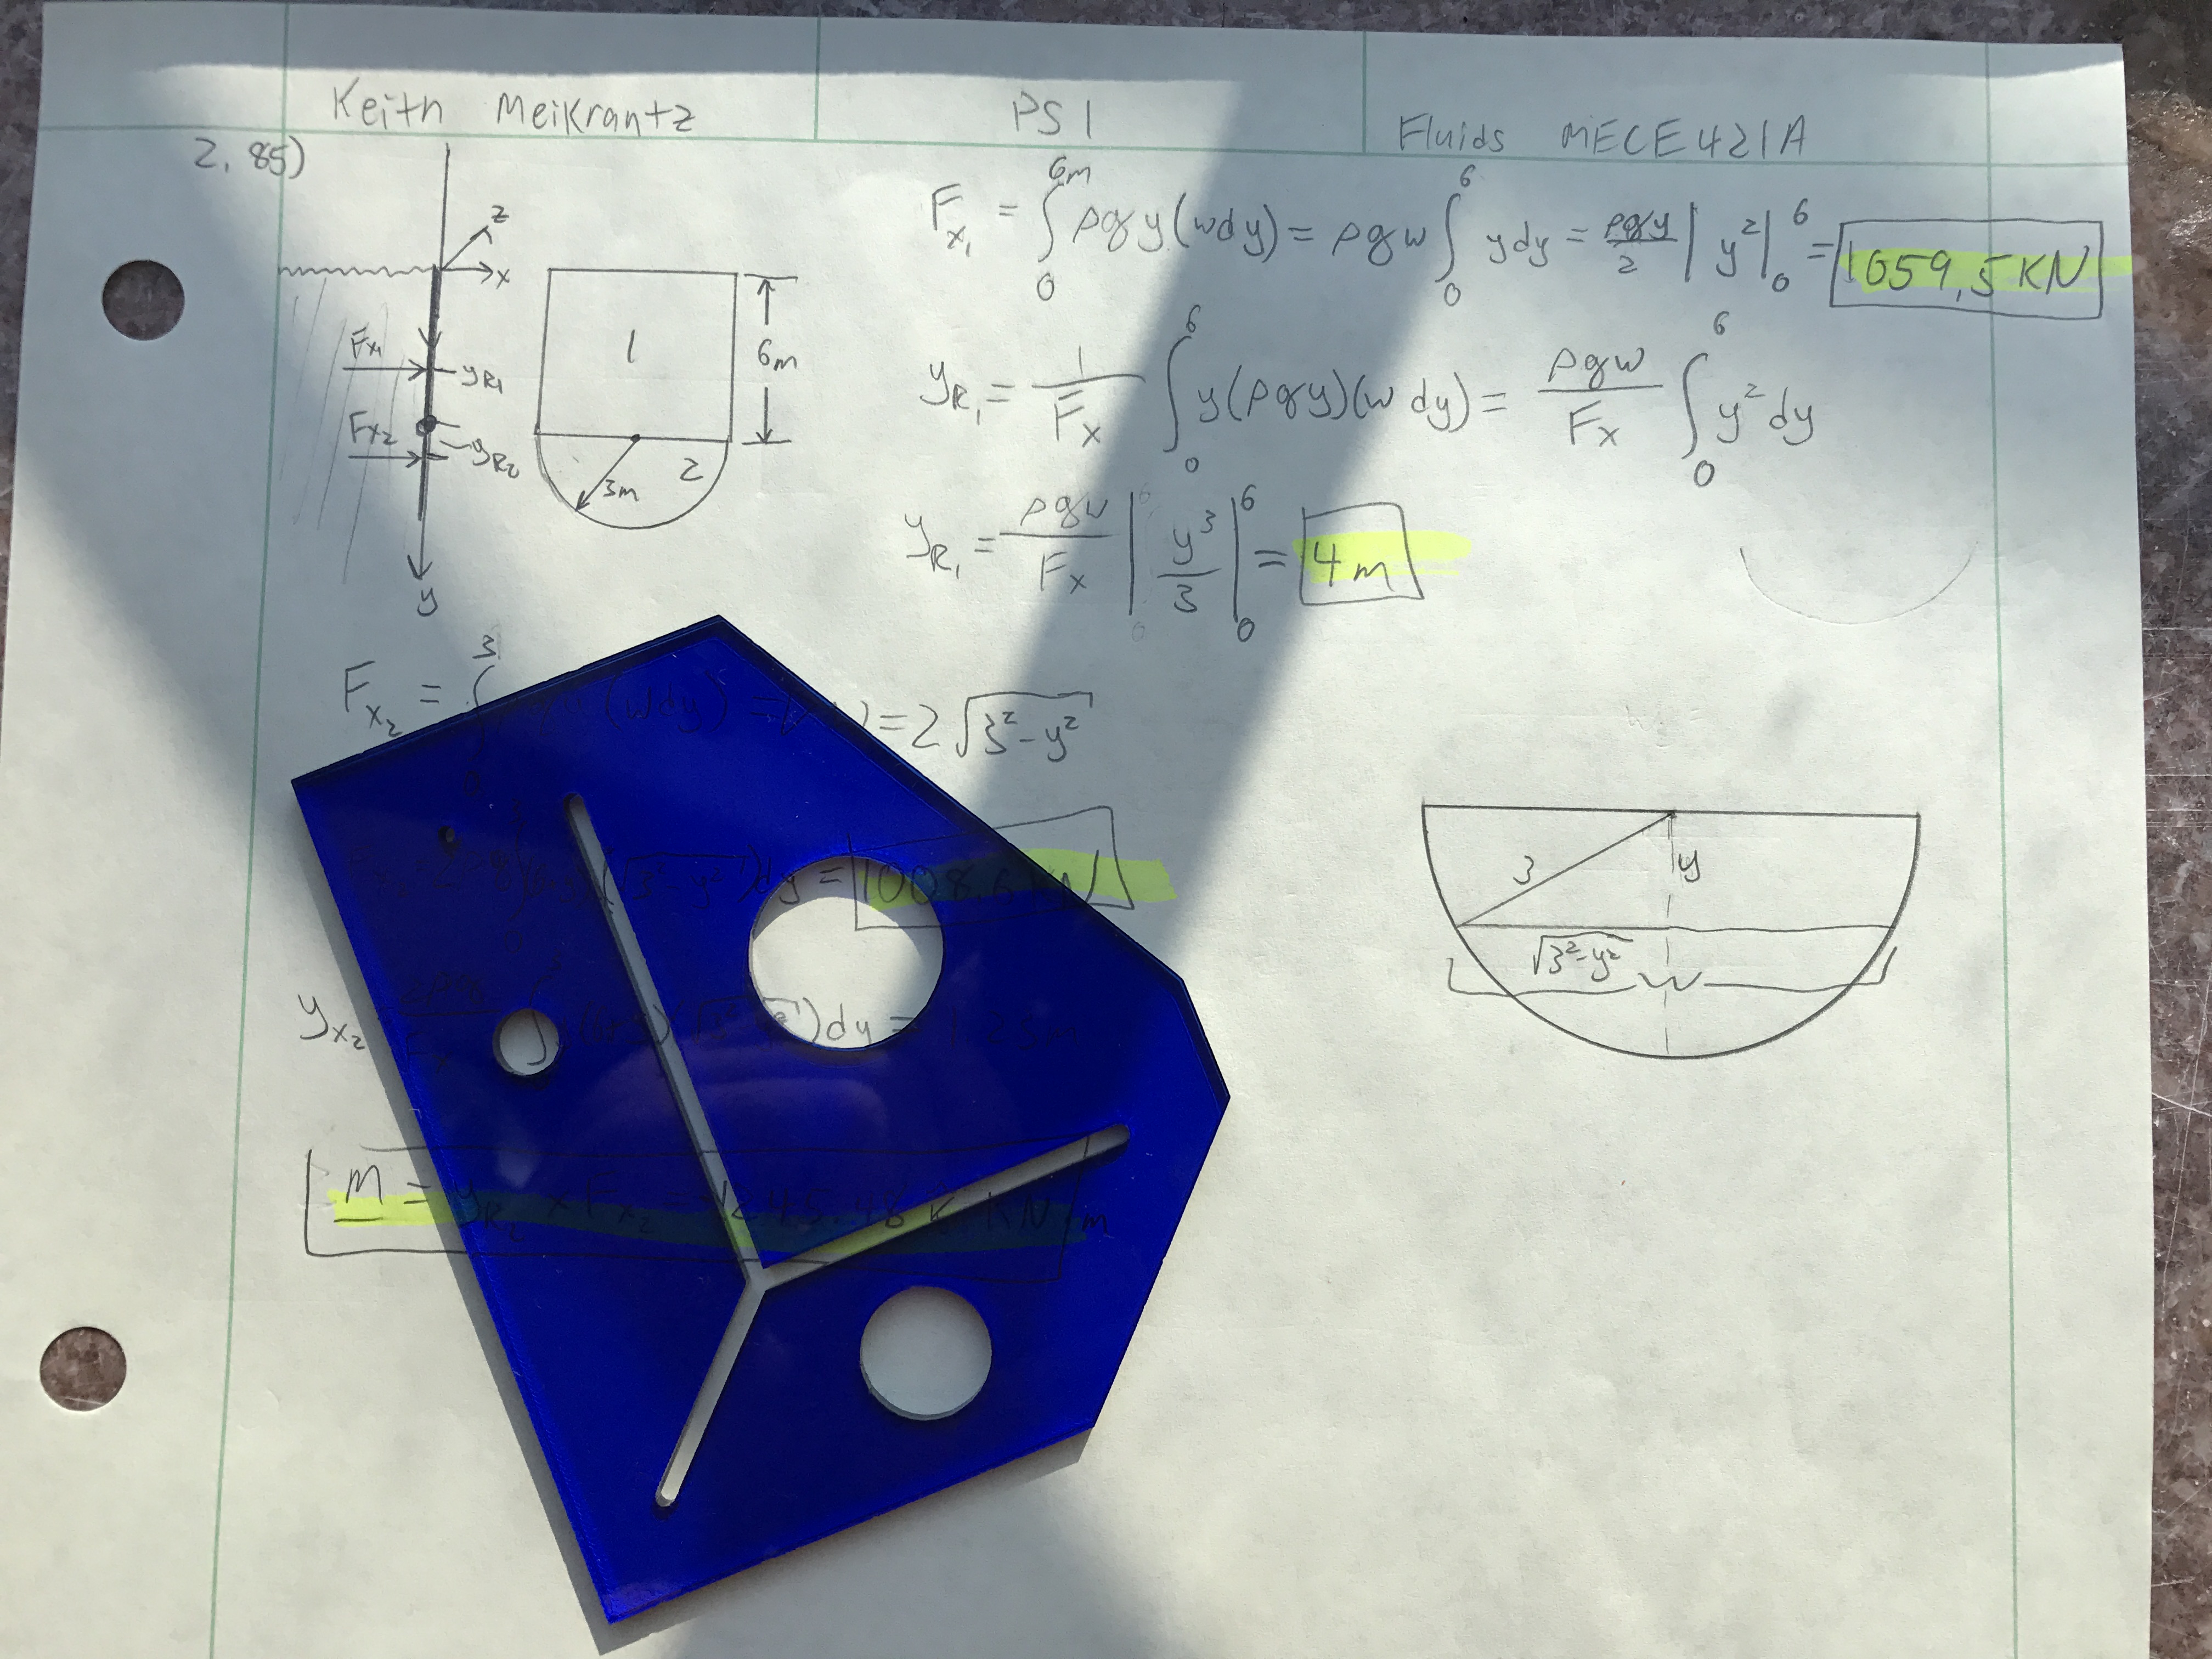 Keith Meikrantz
PS 1
Fluids MECE421A
2.85)
z
x
F_x1
y_R1
F_x2
y_R2
y
1
6m
2
3m
F_x1 = ∫_0^6m ρgy(wdy) = ρgw ∫_0^6 ydy = ρgy/2 | y² |_0^6 = 1059.5 KN
y_R1 = 1/F_x ∫_0^6 y(ρgy)(w dy) = ρgw/F_x ∫_0^6 y² dy
y_R1 = ρgw/F_x | y³/3 |_0^6 = 4m
F_x2 = ∫_0^3 (wdy) = 2√(3²-y²)
(√(3²-y²))dy = 1008.6 KN
3
y
√(3²-y²)
w
y_x2 dy = 1.23m
M = y_R2 × F_x2 = 1245.48 KN m